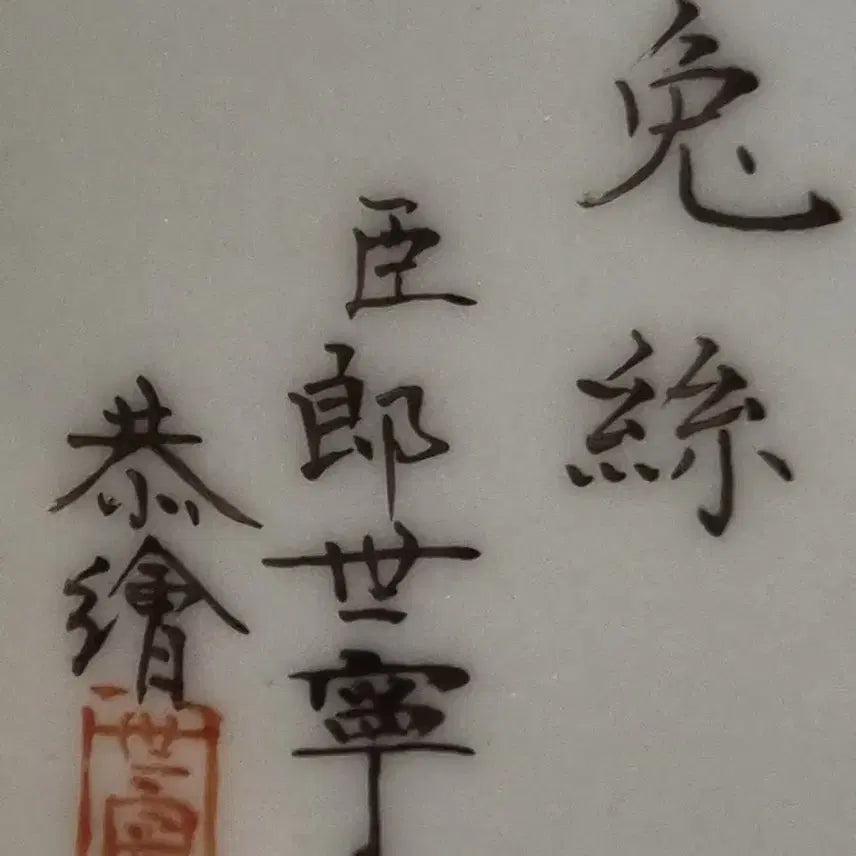 兔絲
臣郎世寧
恭繪
世寧